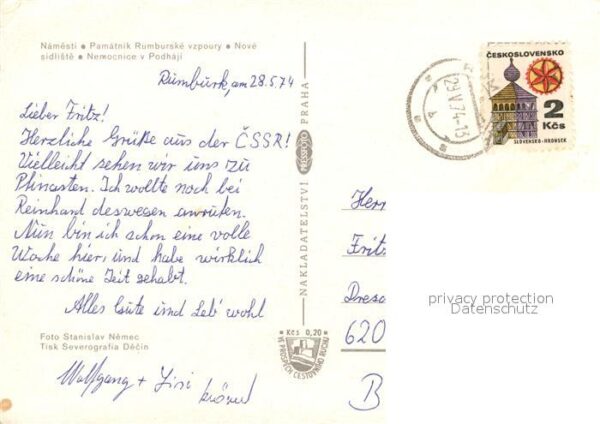 Náměstí • Památník Rumburské vzpoury • Nové
sídliště • Nemocnice v Podhájí
Rumburk, am 28.5.74
Lieber Fritz!
Herzliche Grüße aus der ČSSR!
Vielleicht sehen wir uns zu
Pfingsten. Ich wollte noch bei
Reinhard deswegen anrufen.
Nun bin ich schon eine volle
Woche hier, und habe wirklich
eine schöne Zeit gehabt.
Alles Gute und Leb' wohl
Foto Stanislav Němec
Tisk Severografia Děčín
Wolfgang +
NAKLADATELSTVÍ PRESSFOTO PRAHA
Kčs 0,20
VE PROSPĚCH CESTOVNÍHO RUCHU
ČESKOSLOVENSKO
2
Kčs
SLOVENSKO-HRONSEK
29.V.74-15
Herr
Fritz
Dresd
620
B
privacy protection
Datenschutz